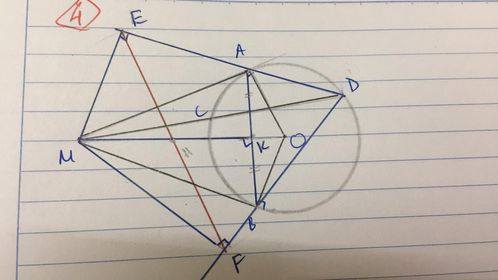 4
E
A
D
C
M
K
O
B
F